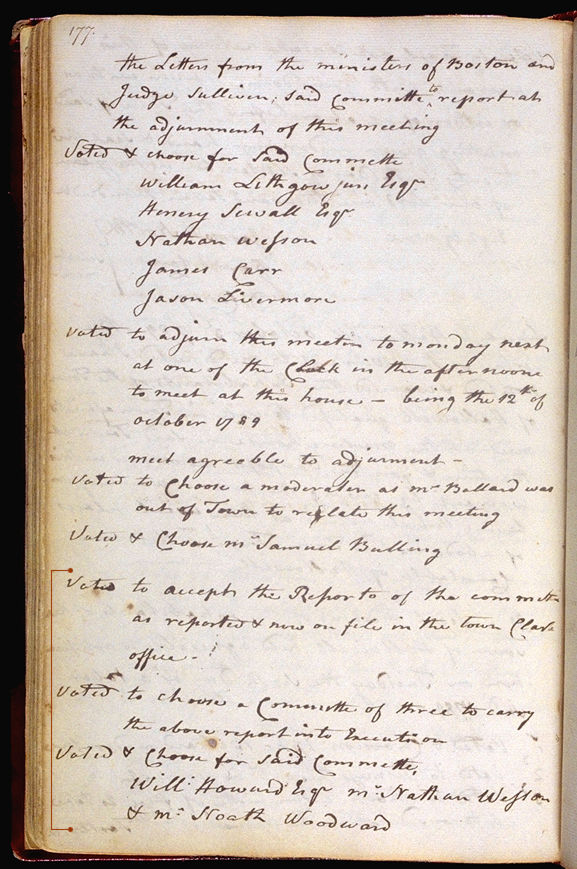 177.
the Letters from the ministers of Boston and
Judge Sulliven, said Committe to report at
the adjurnment of this meeting
Voted & choose for Said Committe
William Lithgow jun Esqr
Henery Sewall Esqr
Nathan Wesson
James Carr
Jason Livermore
Voted to adjurn this meetin to monday next
at one of the Clock in the afternoone
to meet at this house – being the 12th of
october 1789
meet agreable to adjurment –
Voted to Choose a moderater as mr Ballard was
out of Town to reglate this meeting
Voted & Choose mr Samuel Bulling
Voted to accept the Reporte of the committe
as reported & now on file in the town Clark
office –
Voted to choose a Committe of three to carry
the above report into Execution
Voted & Choose for Said Committe,
Will: Howard Esqr mr Nathan Wesson
& mr Noath Woodward